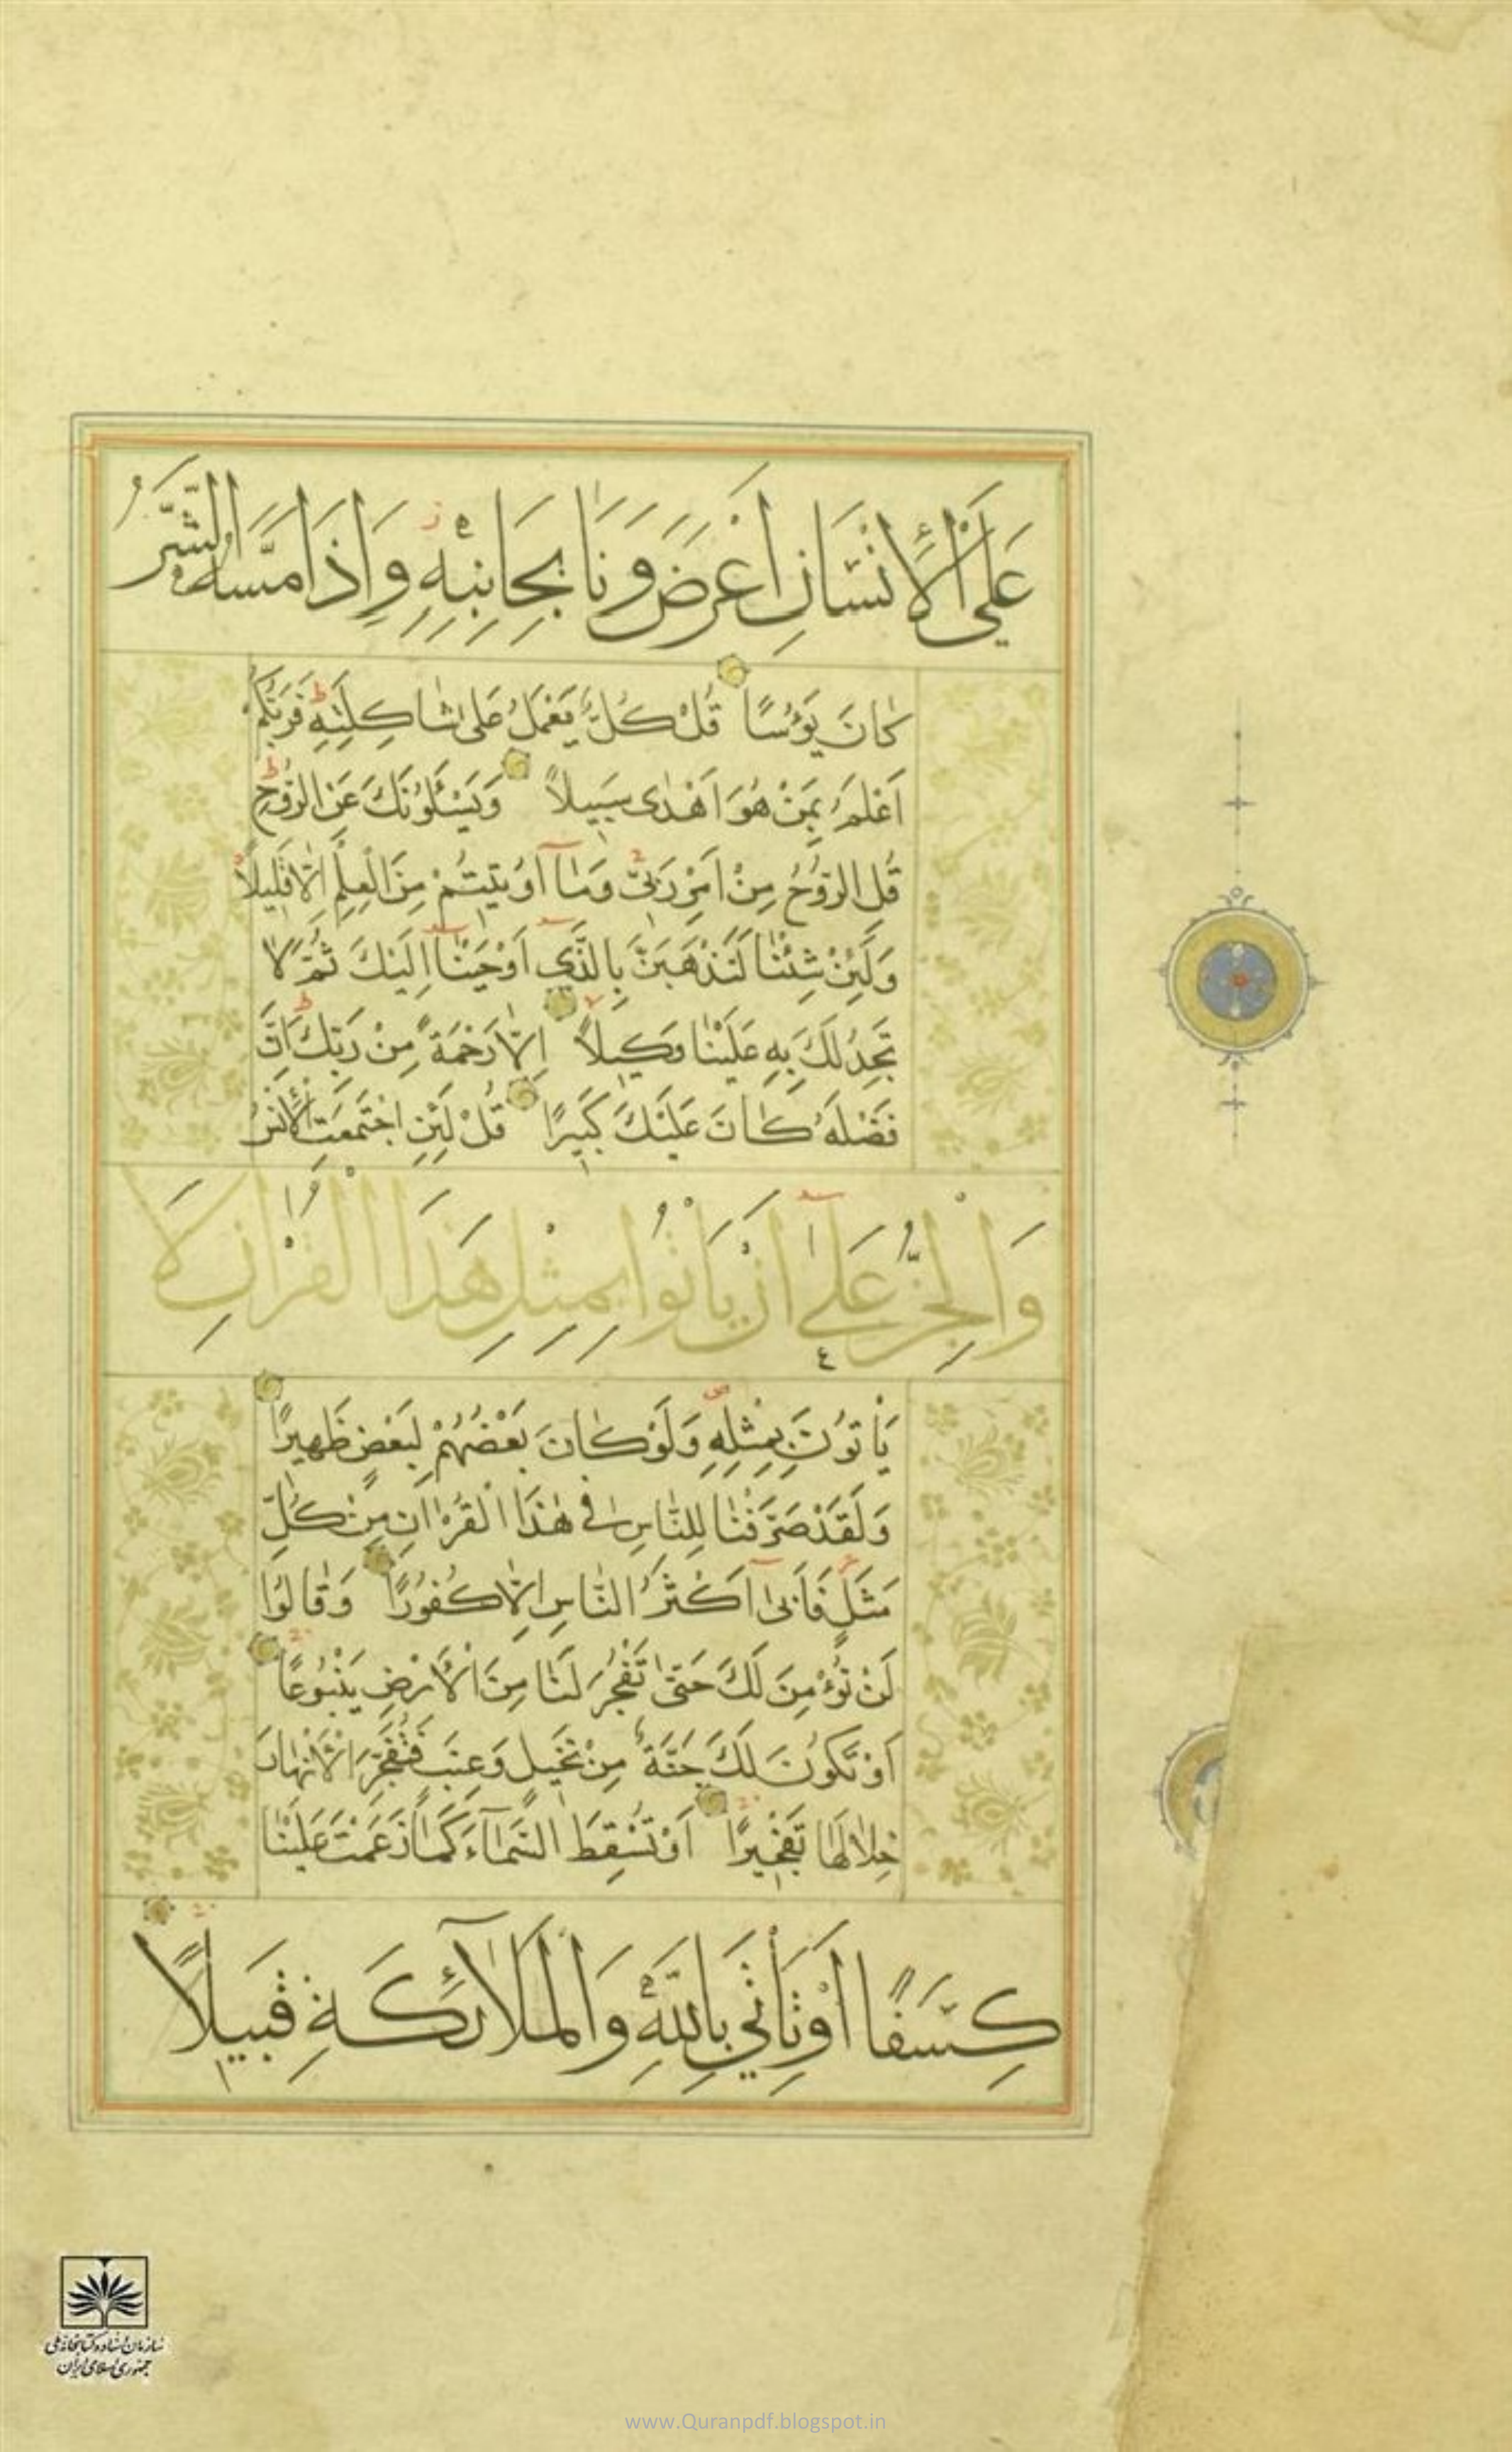 عَلَى الْأِنْسَانِ اَعْرَضَ وَنَا بِجَانِبِهٖ وَاِذَا مَسَّهُ الشَّرُّ
كَانَ يَؤُسًا قُلْ كُلٌّ يَعْمَلُ عَلٰى شَاكِلَتِهٖ فَرَبُّكُمْ
اَعْلَمُ بِمَنْ هُوَ اَهْدٰى سَبِيلًا وَيَسْـَٔلُونَكَ عَنِ الرُّوحِ
قُلِ الرُّوحُ مِنْ اَمْرِ رَبّٖى وَمَآ اُو۫تٖيتُمْ مِنَ الْعِلْمِ اِلَّا قَلٖيلًا
وَلَئِنْ شِئْنَا لَنَذْهَبَنَّ بِالَّذٖٓي اَوْحَيْنَآ اِلَيْكَ ثُمَّ لَا
تَجِدُ لَكَ بِهٖ عَلَيْنَا وَكٖيلًا اِلَّا رَحْمَةً مِنْ رَبِّكَ اِنَّ
فَضْلَهُ كَانَ عَلَيْكَ كَبٖيرًا قُلْ لَئِنِ اجْتَمَعَتِ الْأِنْسُ
وَالْجِنُّ عَلٰٓى اَنْ يَاْتُوا بِمِثْلِ هٰذَا الْقُرْاٰنِ لَا
يَاْتُونَ بِمِثْلِهٖ وَلَوْ كَانَ بَعْضُهُمْ لِبَعْضٍ ظَهٖيرًا
وَلَقَدْ صَرَّفْنَا لِلنَّاسِ فٖى هٰذَا الْقُرْاٰنِ مِنْ كُلِّ
مَثَلٍ فَاَبٰىٓ اَكْثَرُ النَّاسِ اِلَّا كُفُورًا وَقَالُوا
لَنْ نُؤْمِنَ لَكَ حَتّٰى تَفْجُرَ لَنَا مِنَ الْأَرْضِ يَنْبُوعًا
اَوْ تَكُونَ لَكَ جَنَّةٌ مِنْ نَخٖيلٍ وَعِنَبٍ فَتُفَجِّرَ الْأَنْهَارَ
خِلَالَهَا تَفْجٖيرًا اَوْ تُسْقِطَ السَّمَآءَ كَمَا زَعَمْتَ عَلَيْنَا
كِسَفًا اَوْ تَاْتِيَ بِاللّٰهِ وَالْمَلَآئِكَةِ قَبٖيلًا
سازمان اسناد و کتابخانه ملی
جمهوری اسلامی ایران
www.Quranpdf.blogspot.in